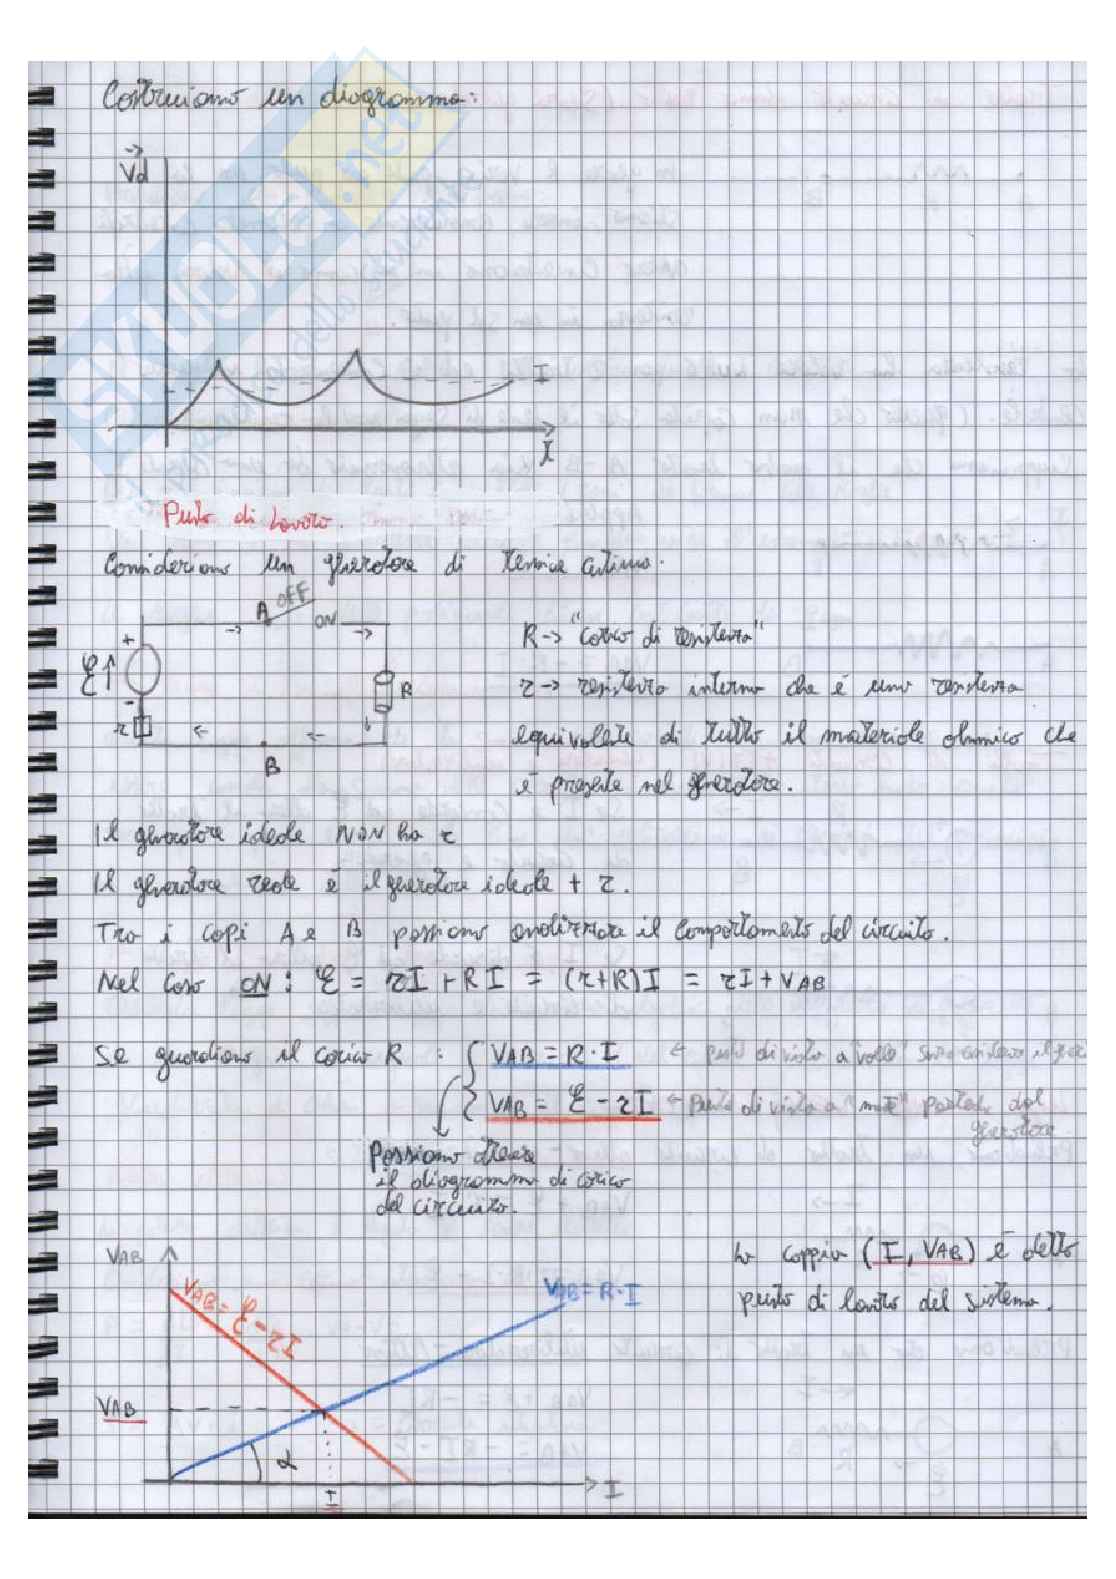 Costruiamo un diagramma:
Vd
I
Punto di Lavoro.
Consideriamo un generatore di tensione continua.
A OFF
ON
+
ℰ↑
-
r
R
B
R → "carico di resistenza"
r → resistenza interna che è una resistenza
equivalente di tutto il materiale ohmico che
è presente nel generatore.
Il generatore ideale NON ha r
Il generatore reale è il generatore ideale + r.
Tra i capi A e B possiamo analizzare il comportamento del circuito.
Nel caso ON : ℰ = rI + RI = (r+R)I = rI + VAB
Se guardiamo il carico R : { VAB = R·I ← punto di vista a "valle"
VAB = ℰ - rI ← Punto di vista a "monte" dal
generatore
Possiamo ottenere
il diagramma di carico
del circuito.
VAB
VAB = ℰ - rI
VAB = R·I
La coppia (I, VAB) è detta
punto di lavoro del sistema.
VAB
α
I
I
SKUOLA.net